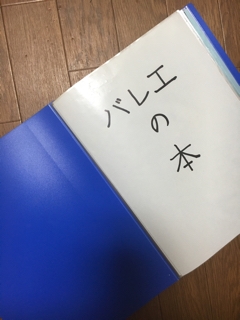 バレエ
の
本